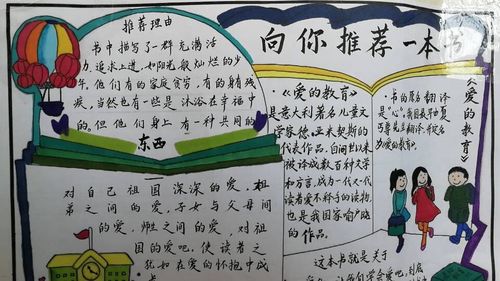 推荐理由
书中描写了一群充满活
力、追求上进,如阳光般灿烂的少
年。他们有的家庭贫穷,有的身有残
疾,当然也有一些是沐浴在幸福中
的。但他们身上有一种共同的
东西
对自己祖国深深的爱,祖
弟之间的爱,子女与父母间
的爱,师生之间的爱,对祖
国的爱吧。使读者之
犹如在爱的怀抱中成
向你推荐一本书
《爱的教育》
·《爱的教育》
是意大利著名儿童文
学家德·亚米契斯的
代表作品。自问世以来
被译成数百种文字
和方言,成为一代又一代
读者爱不释手的读物,
也是我国家喻户晓
的作品。
·书的原名翻译
是“心”,我国
为《爱的教育》。
这本书就是关于